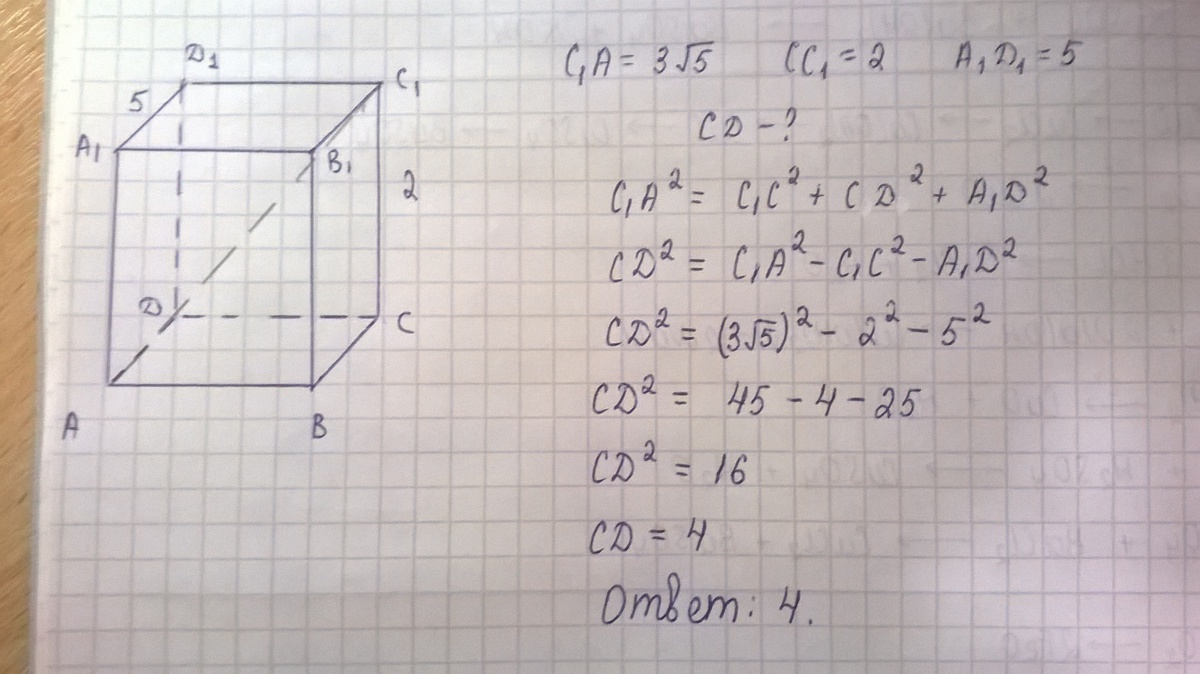 D₁
C₁
5
A₁
B₁
2
D
C
A
B
C₁A = 3√5 CC₁ = 2 A₁D₁ = 5
CD - ?
C₁A² = C₁C² + CD² + A₁D²
CD² = C₁A² - C₁C² - A₁D²
CD² = (3√5)² - 2² - 5²
CD² = 45 - 4 - 25
CD² = 16
CD = 4
Ответ: 4.